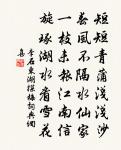 短短青蒲浅浅沙
春風不隔水仙家
一枝未報江南信
旋琢湖水看雪花
李石東湖探梅詞典網